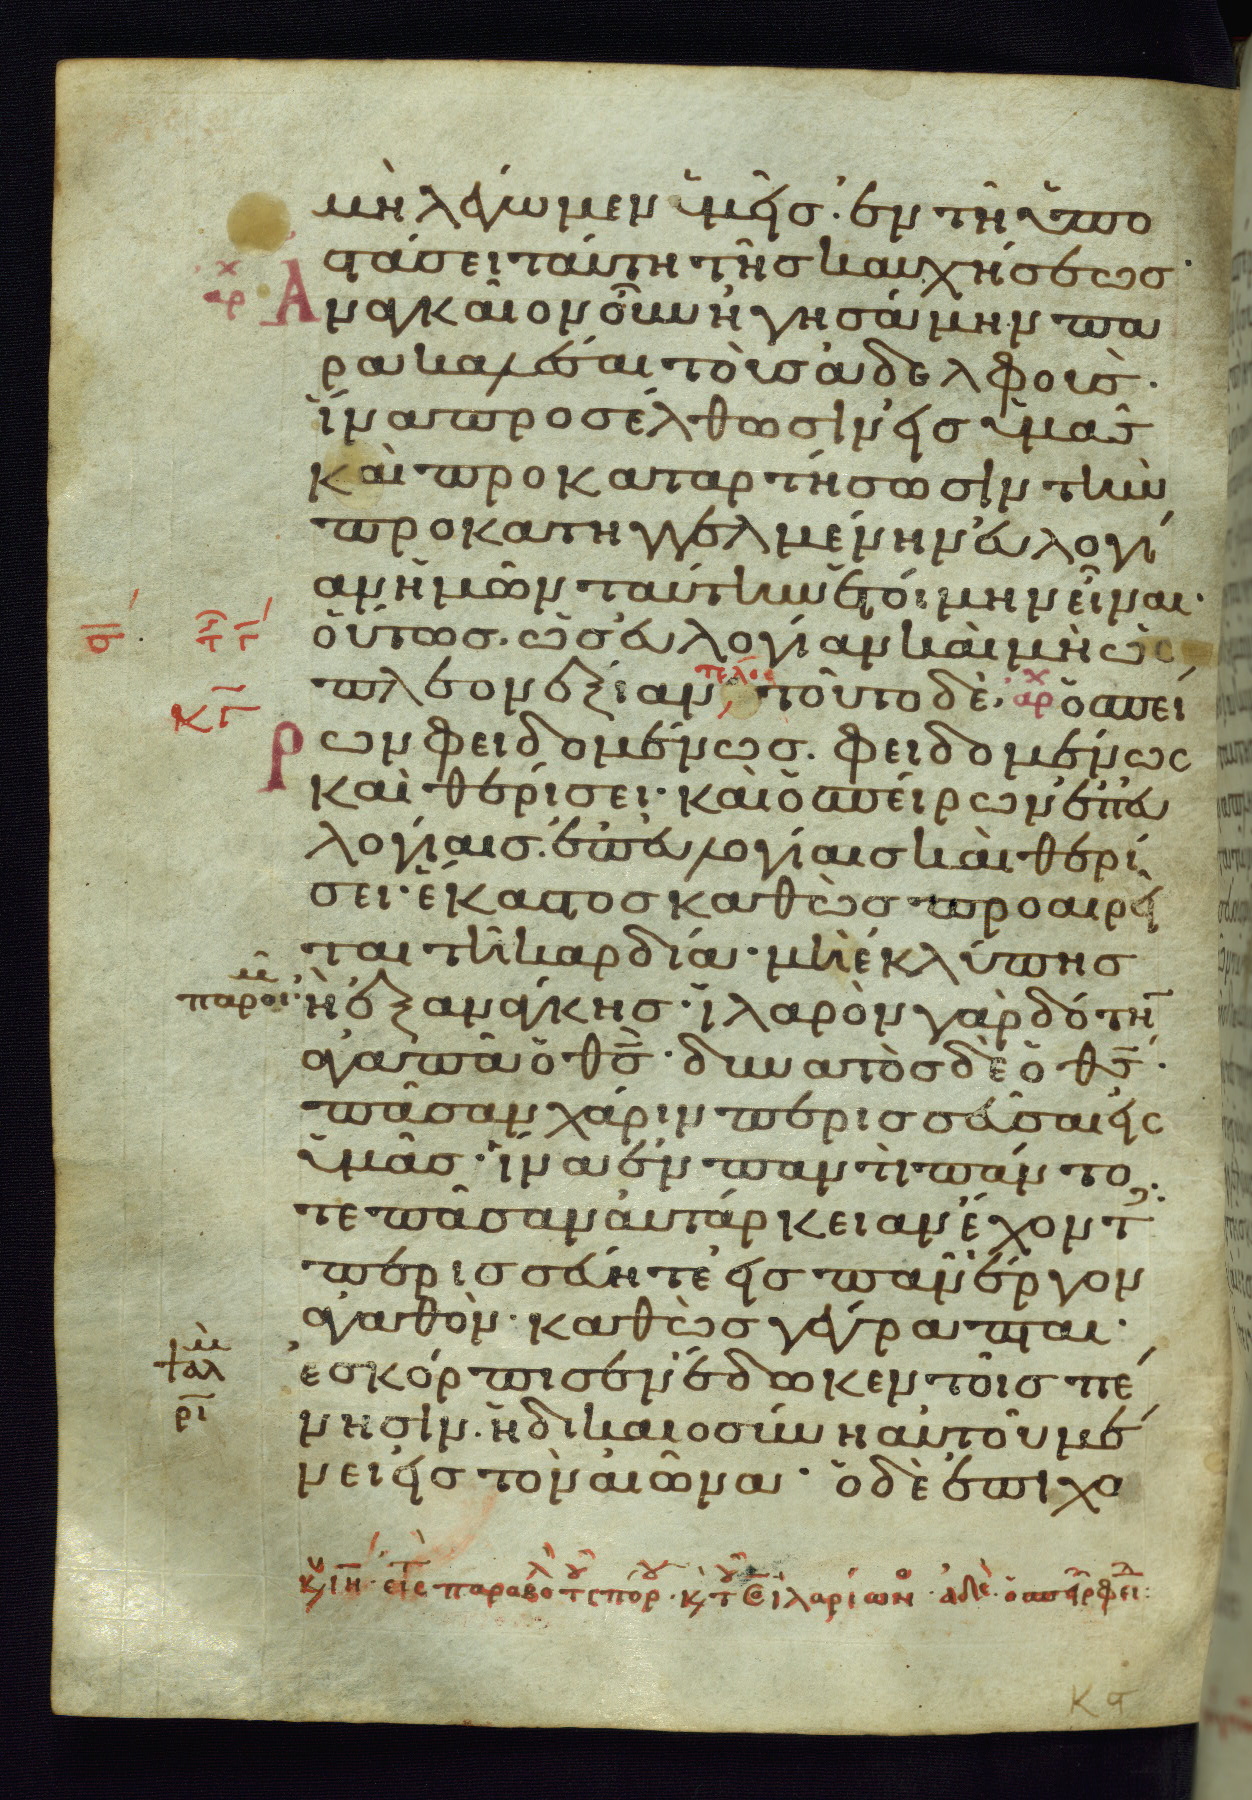 μὴ λέγωμεν ὑμεῖς· ἐν τῆ ὑπο
στάσει ταύτη τῆς καυχήσεως·
αρχ Ἀ
ναγκαῖον οὖν ἡγησάμην πα
ρακαλέσαι τοὺς ἀδελφοὺς·
ἵνα προσέλθωσιν εἰς ὑμᾶς
καὶ προκαταρτήσωσιν τὴν
προκατηγγελμένην εὐλογί
αν ἡμῶν ταύτην ἑτοίμην εἶναι·
οὕτως· ὡς εὐλογίαν καὶ μὴ ὡς
πλεονεξίαν, τέλος τοῦτο δὲ· αρχ ὁ σπεί
ρων φειδομένως· φειδομένως
καὶ θερίσει· καὶ ὁ σπείρων ἐπ' εὐ
λογίαις· ἐπ' εὐλογίαις καὶ θερί
σει· ἕκαστος καθὼς προαιρεῖ
ται τῆ καρδία· μὴ ἐκ λύπης
παροι
ἢ ἐξ ἀνάγκης· ἱλαρὸν γὰρ δότην
ἀγαπᾶ ὁ θς· δυνατὸς δὲ ὁ θς·
πᾶσαν χάριν περισσεῦσαι εἰς
ὑμᾶς· ἵνα ἐν παντὶ πάντο
τε πᾶσαν αὐτάρκειαν ἔχοντ
περισσεύητε εἰς πᾶν ἔργον
ἀγαθὸν· καθὼς γέγραπται·
ψαλ
ρι
ἐσκόρπισεν ἔδωκεν τοῖς πέ
νησιν· ἡ δικαιοσύνη αὐτοῦ μέ
νει εἰς τὸν αἰῶνα· ὁ δὲ ἐπιχο